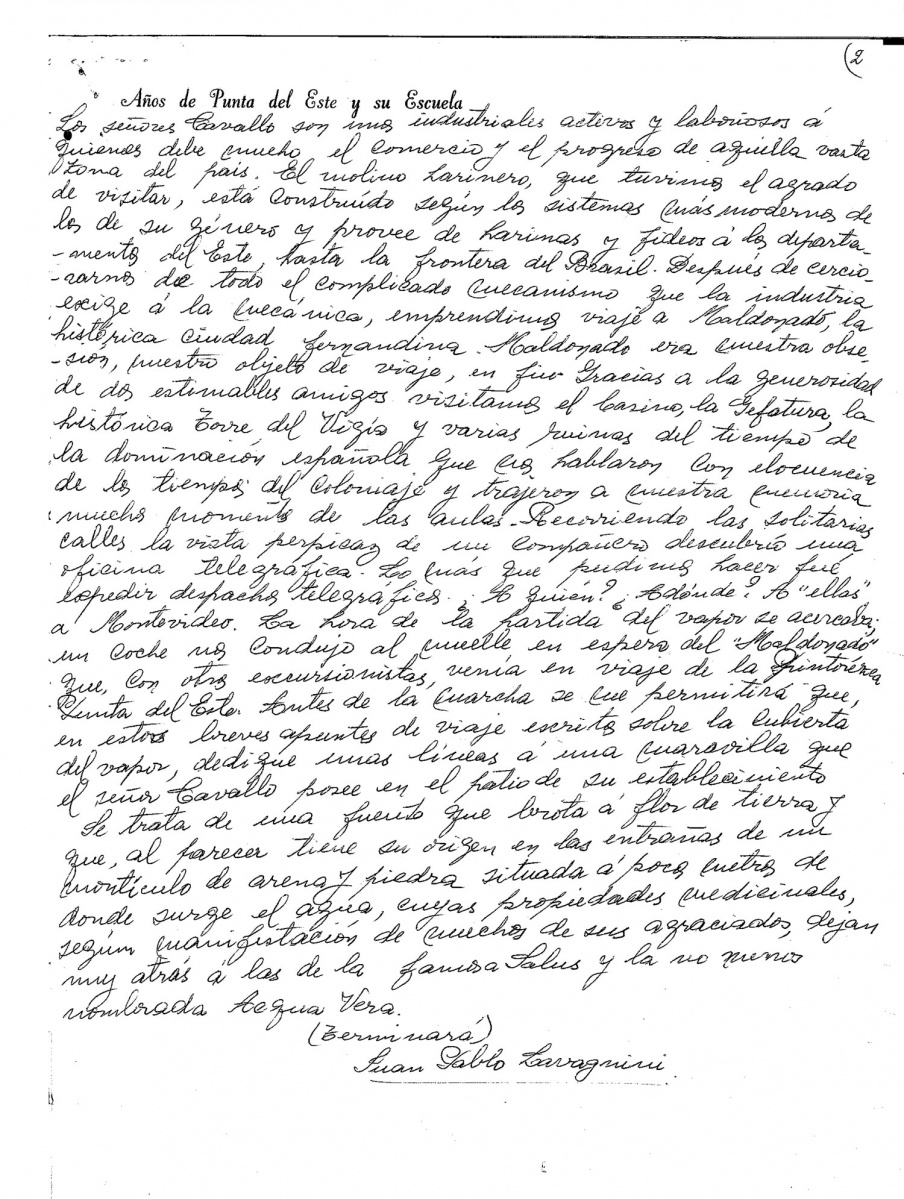 (2
Años de Punta del Este y su Escuela
Los señores Cavallo son unos industriales activos y laboriosos á
quienes debe mucho el comercio y el progreso de aquella vasta
zona del país. El molino harinero, que tuvimos el agrado
de visitar, está construído según los sistemas más modernos de
los de su género y provee de harinas y fideos á los departa-
-mentos del Este, hasta la frontera del Brasil. Después de cercio-
-rarnos de todo el complicado mecanismo que la industria
exige á la mecánica, emprendimos viaje a Maldonado, la
histórica ciudad fernandina. Maldonado era nuestra obse-
-sion, nuestro objeto de viaje, en fin. Gracias a la generosidad
de dos estimables amigos visitamos el Casino, la Gefatura, la
histórica Torre del Vigía y varias ruinas del tiempo de
la dominación española que nos hablaron con elocuencia
de los tiempos del coloniaje y trajeron a nuestra memoria
muchos momentos de las aulas. Recorriendo las solitarias
calles la vista perpicaz de un compañero descubrió una
oficina telegráfica. Lo más que pudimos hacer fué
expedir despachos telegráficos. ¿A quién? ¿Adónde? A "ellas"
a Montevideo. La hora de la partida del vapor se acercaba:
un coche nos condujo al muelle en espera del "Maldonado"
que, con otros excursionistas, venía en viaje de la pintoresca
Punta del Este. Antes de la marcha se me permitirá que,
en estos breves apuntes de viaje escritos sobre la cubierta
del vapor, dedique unas líneas á una maravilla que
el señor Cavallo posee en el patio de su establecimiento
Se trata de una fuente que brota á flor de tierra y
que, al parecer tiene su origen en las entrañas de un
montículo de arena y piedra situada á pocos metros de
donde surge el agua, cuyas propiedades medicinales,
según manifestación de muchos de sus agraciados, dejan
muy atrás á las de la famosa Salus y la no menos
nombrada Acqua Vera.
(Terminará)
Juan Pablo Lavagnini